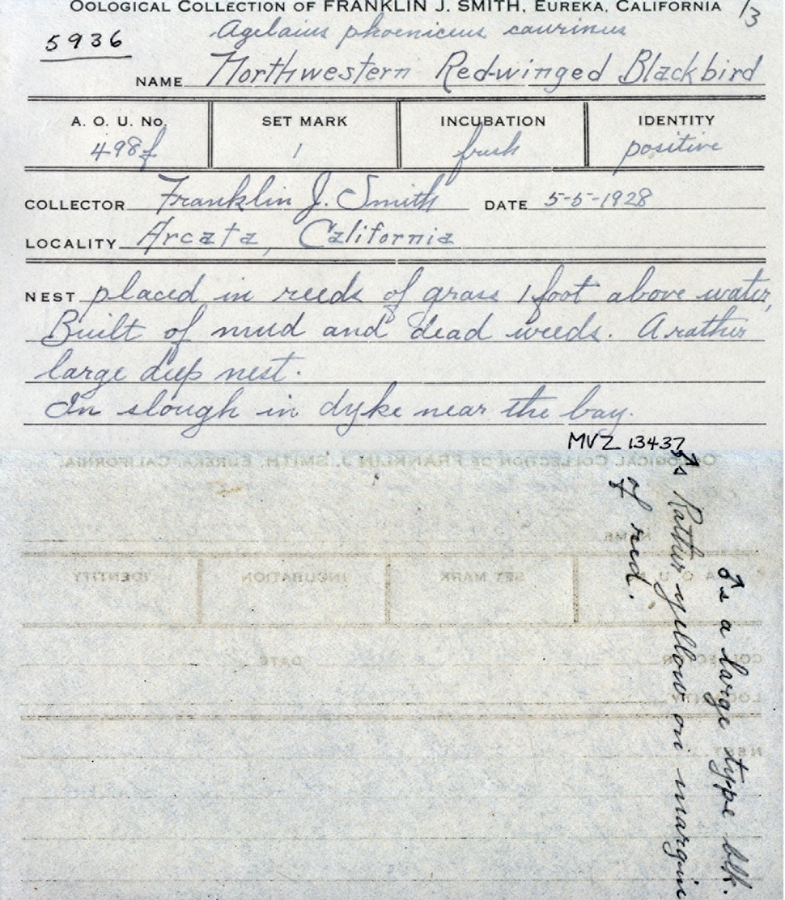 OOLOGICAL COLLECTION OF FRANKLIN J. SMITH, EUREKA, CALIFORNIA 1/3
5936
Agelaius phoeniceus caurinus
NAME Northwestern Red-winged Blackbird
A. O. U. No. SET MARK INCUBATION IDENTITY
498f 1 fresh positive
COLLECTOR Franklin J. Smith DATE 5-5-1928
LOCALITY Arcata, California
NEST placed in reeds of grass 1 foot above water,
Built of mud and dead weeds. A rather
large deep nest.
In slough in dyke near the bay.
MVZ 13437
♂s a large type blk.
♂s Rather yellow on margin
of red.